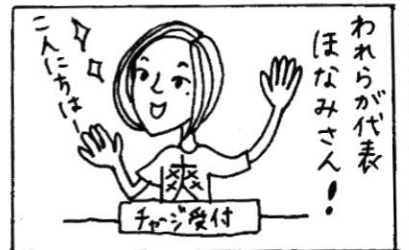 われらが代表
ほなみさん！
こんにちはー
爽
チャージ受付